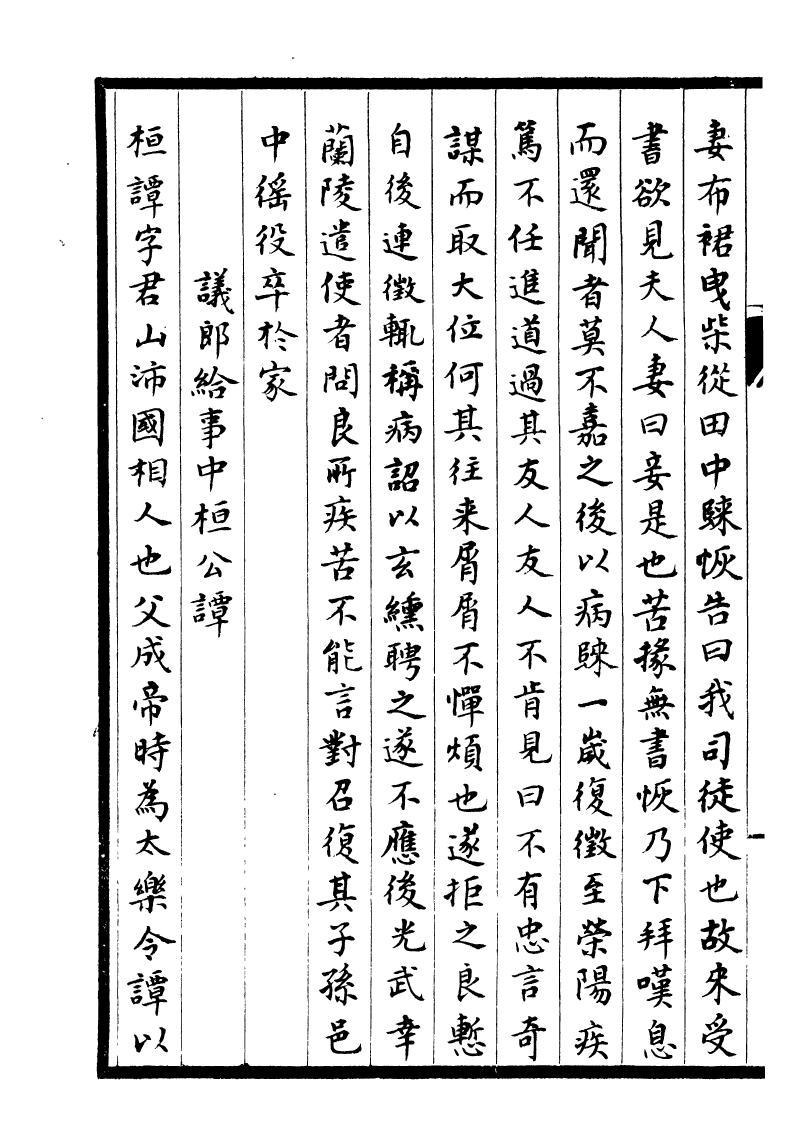 妻布裙曳柴從田中歸恢告曰我司徒使也故來受
書欲見夫人妻曰妾是也苦掾無書恢乃下拜嘆息
而還聞者莫不嘉之後以病歸一歲復徵至榮陽疾
篤不任進道過其友人友人不肯見曰不有忠言奇
謀而取大位何其往来屑屑不憚煩也遂拒之良慙
自後連徵輒稱病詔以玄纁聘之遂不應後光武幸
蘭陵遣使者問良所疾苦不能言對召復其子孫邑
中徭役卒於家
議郎給事中桓公譚
桓譚字君山沛國相人也父成帝時為太樂令譚以